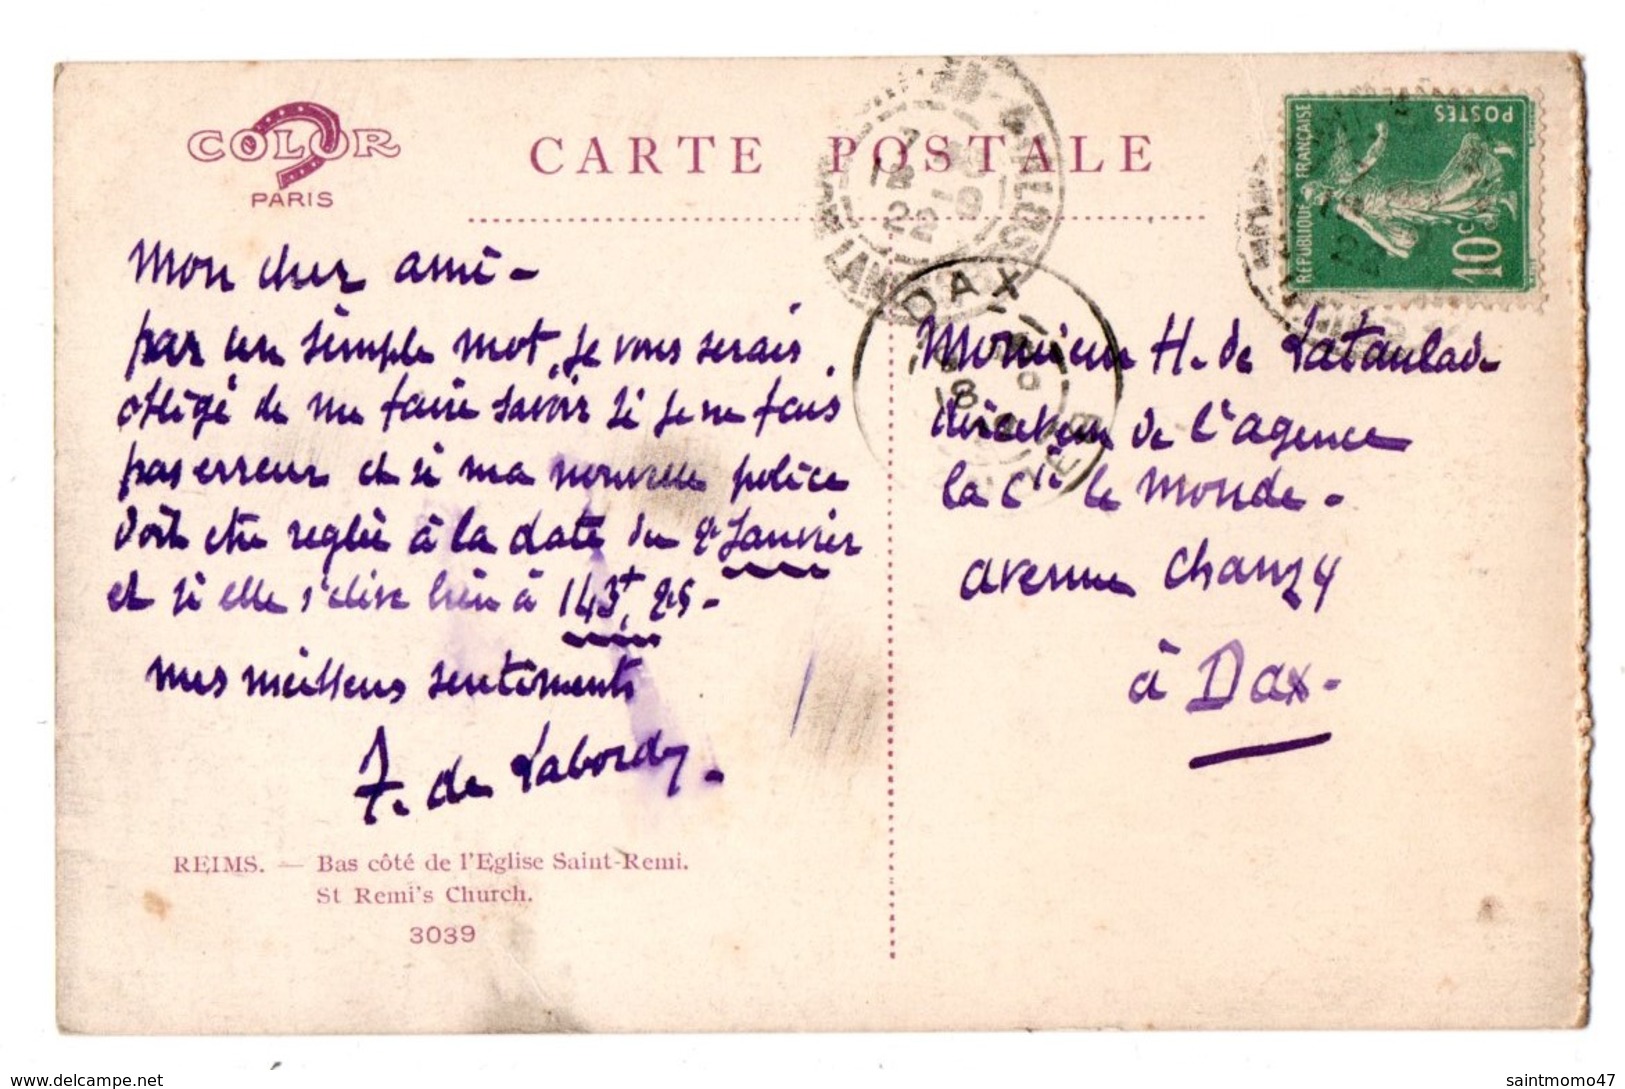 COLOR
PARIS
CARTE POSTALE
RÉPUBLIQUE FRANÇAISE
POSTES
10c
22
DAX
Mon cher ami –
par un simple mot, je vous serais
obligé de me faire savoir si je ne fais
pas erreur et si ma nouvelle police
doit être reglée à la date du 2 Janvier
et si elle s'élève bien à 143f, 25 –
mes meilleurs sentiments
F. de Laborde.
Monsieur H. de Lataulade
directeur de l'agence
la Cie le Monde –
avenue Chanzy
à Dax –
REIMS. — Bas côté de l'Eglise Saint-Remi.
St Remi's Church.
3039
www.delcampe.net
saintmomo47